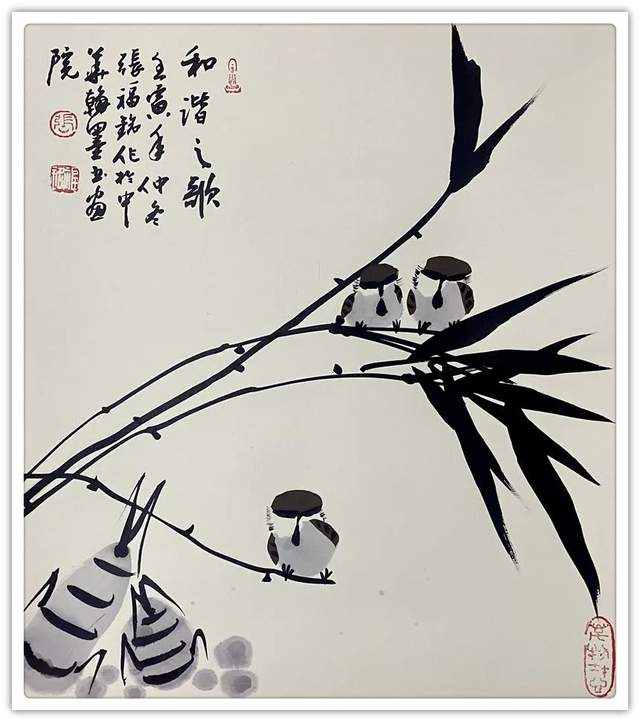 和谐之歌
壬寅年仲冬
張福銘作於中
華翰墨书画
院
張